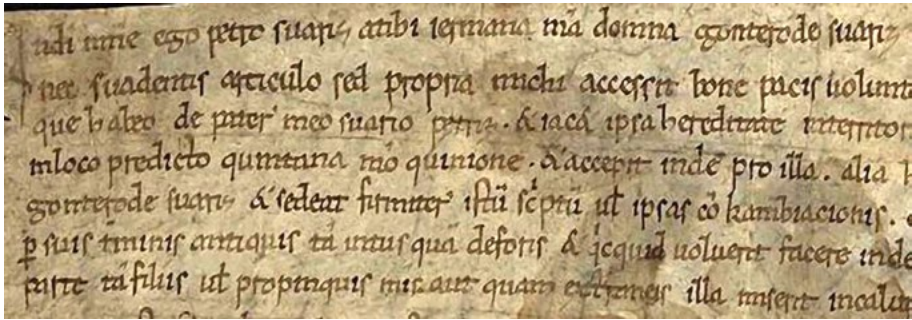 ndi nme ego petro suariz atibi iermana mā domna gonterode suariz
nec suadentis articulo sed propria michi accessit bone pacis uolunta
que habeo de pater meo suario petriz. & iacā ipsa hereditate interritor
inloco predicto quintana mō quinione. & accepit inde pro illa. alia h
gonterode suariz & sedeat firmiter istū scˡptū uł ipsas cō kambiacionis.
ꝑ suis tˀminis antiquis tā intus quā deforis & qˡcquid uoluerit facere inde
parte tā filiis uł propinquis mis aut quam extraneis illa miserit incalup